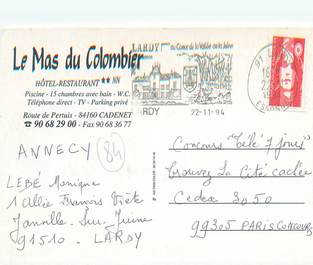 Le Mas du Colombier
HÔTEL-RESTAURANT ★★ NN
Piscine - 15 chambres avec bain - W.C.
Téléphone direct - TV - Parking privé
Route de Pertuis - 84160 CADENET
☎ 90 68 29 00 - Fax 90 68 36 77
LARDY au Coeur de la Vallée de la Juine
LARDY
22-11-94
91 LARDY
ESSONNE
ANNECY
84
LEBÉ Monique
1 Allée François Viète
Janville-Sur-Juine
91510 - LARDY
Concours "télé 7 jours"
trouvez La Cité cachée
Cedex 3050
99305 PARIS CONCOURS